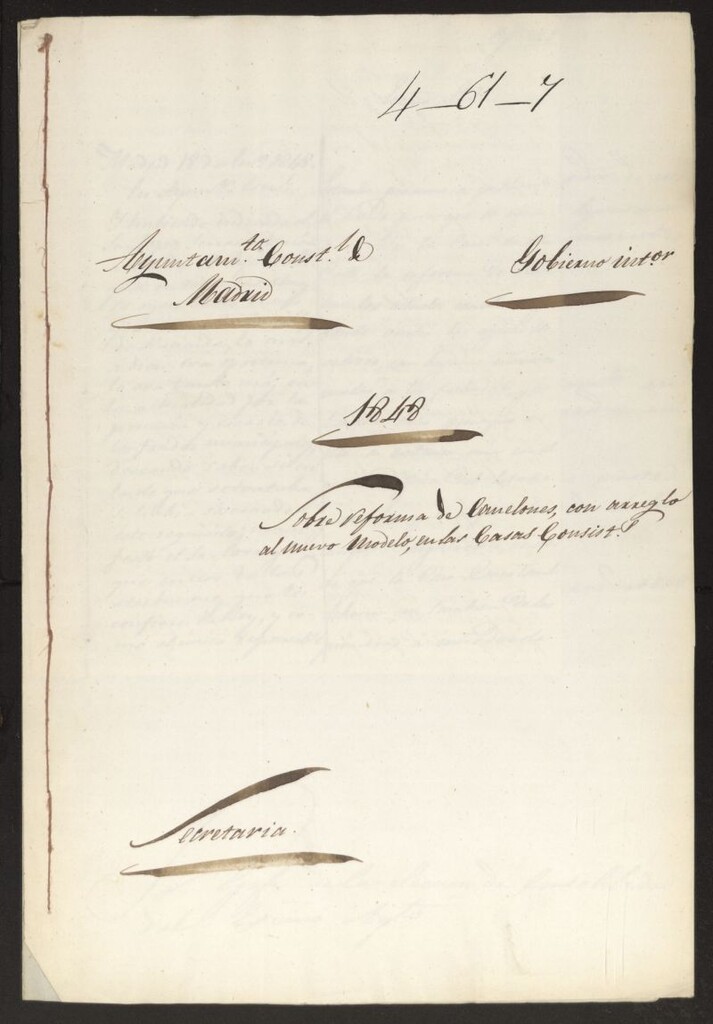 4-61-7
Ayuntam.to Const.l de
Madrid
Gobierno int.or
1848
Sobre reforma de Canelones, con arreglo
al nuevo modelo, en las Casas Consist.s
Secretaria.